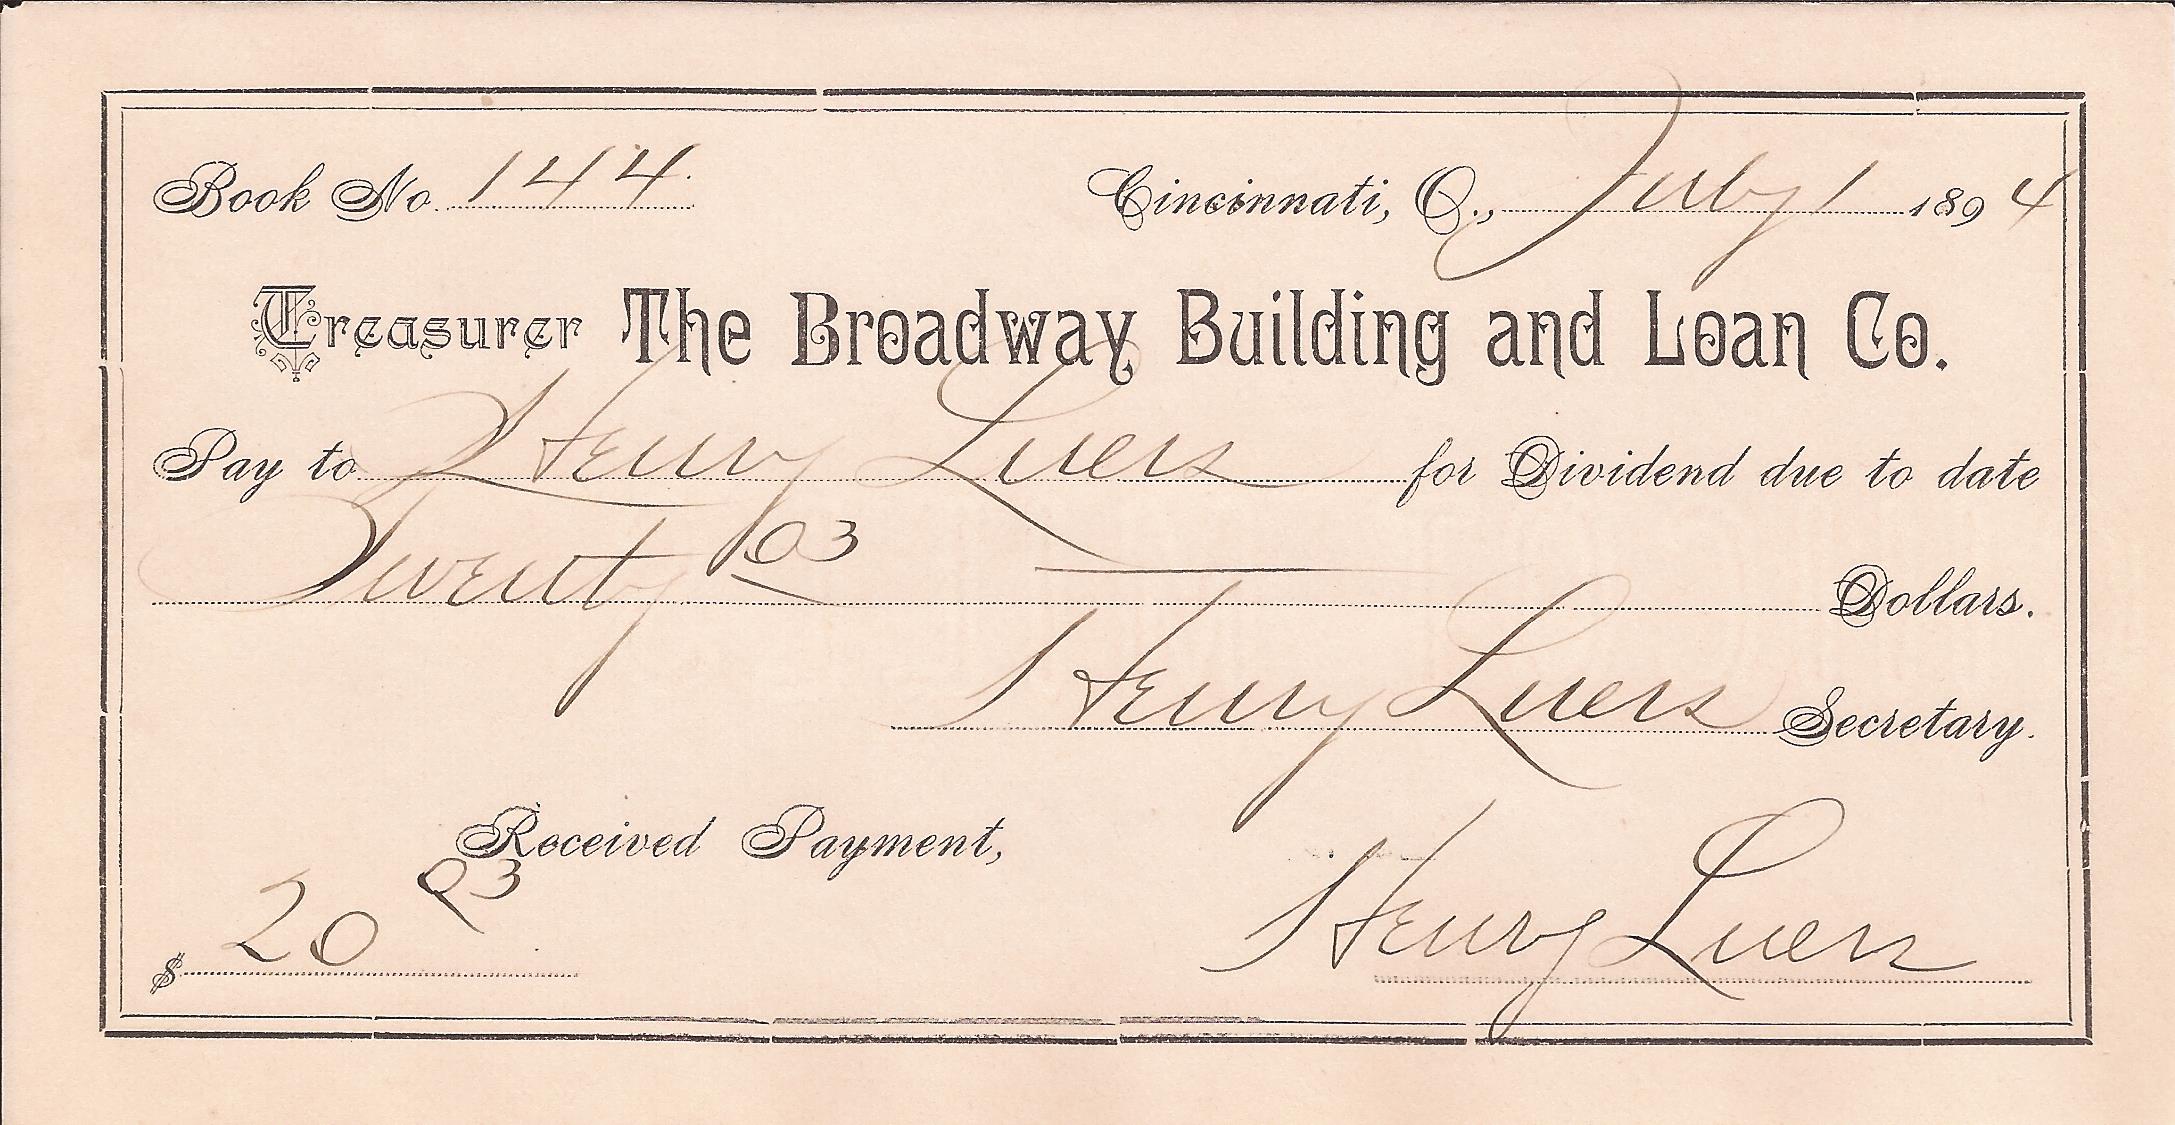 Book No. 144. Cincinnati, O., July 1 1894
Treasurer The Broadway Building and Loan Co.
Pay to Henry Luers for Dividend due to date
Twenty 03 Dollars.
Henry Luers Secretary.
Received Payment,
$ 20 03 Henry Luers